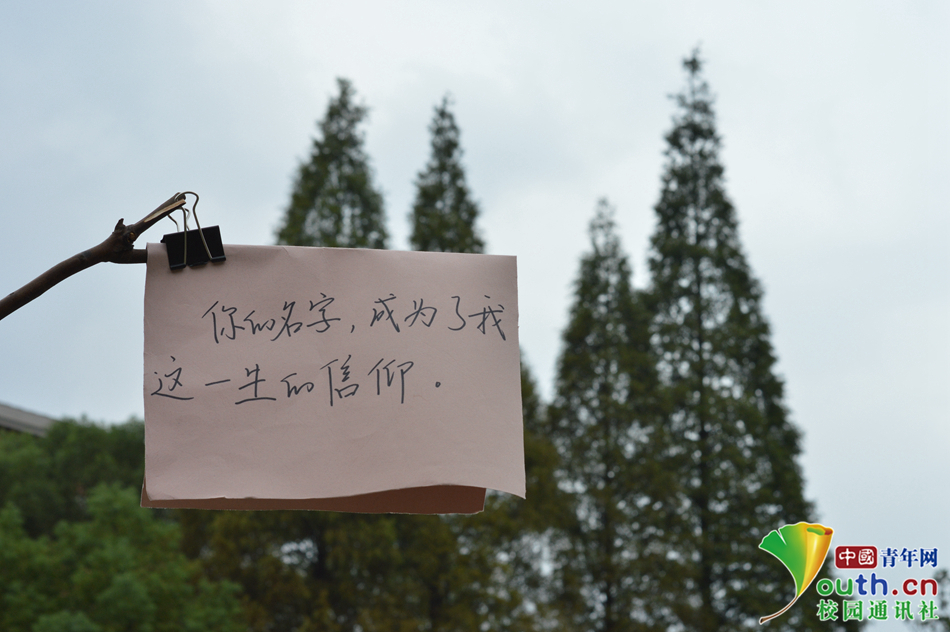 你的名字，成为了我
这一生的信仰。
中國青年网
outh.cn
校园通讯社